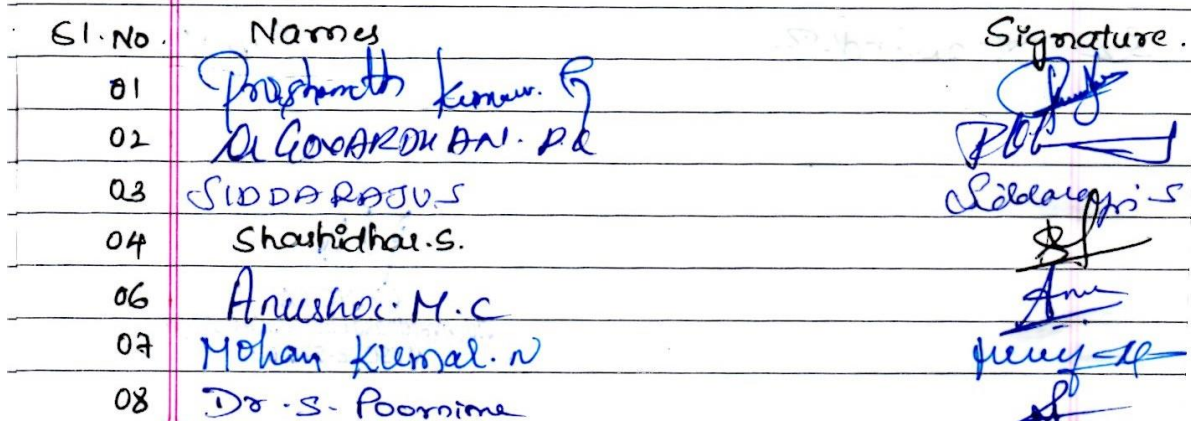 Sl. No. Names Signature.
01 Prashanth Kumar. G
02 Dr GOVARDHAN. D.R
03 SIDDARAJU S Siddaraju S
04 Shashidhar.S.
06 Anusha. M.C Anu
07 Mohan Kumar. N
08 Dr. S. Poornima